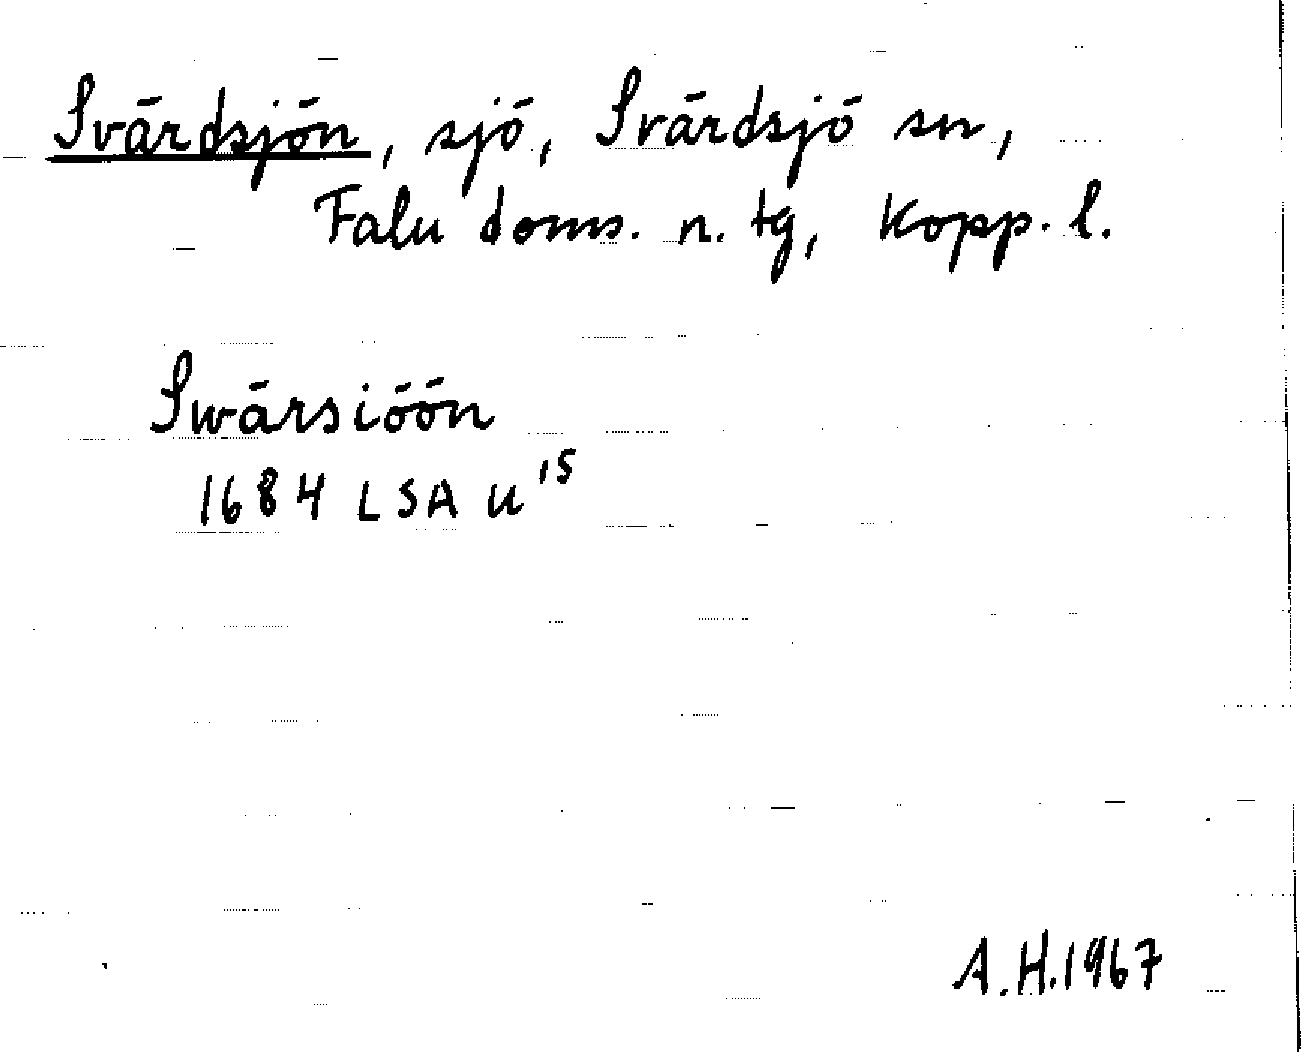 Svärdsjön, sjö, Svärdsjö sn,
Falu doms. n. tg, Kopp. l.
Swärsiöön
1684 LSA U¹⁵
A.H.1967